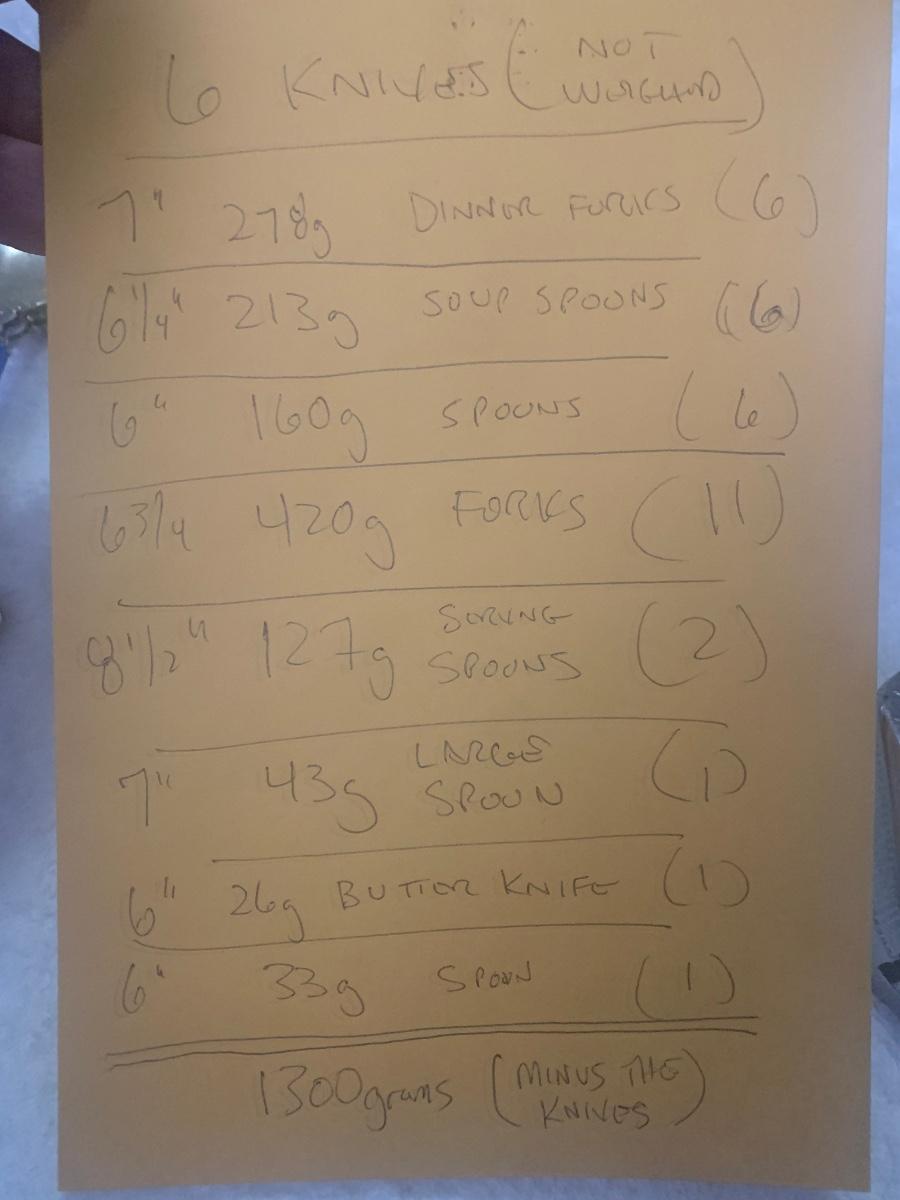 6 KNIVES (NOT WEIGHED)
7" 278g DINNER FORKS (6)
6 1/4" 213g SOUP SPOONS (6)
6" 160g SPOONS (6)
6 3/4 420g FORKS (11)
8 1/2" 127g SERVING SPOONS (2)
7" 43g LARGE SPOON (1)
6" 26g BUTTER KNIFE (1)
6" 33g SPOON (1)
1300grams (MINUS THE KNIVES)